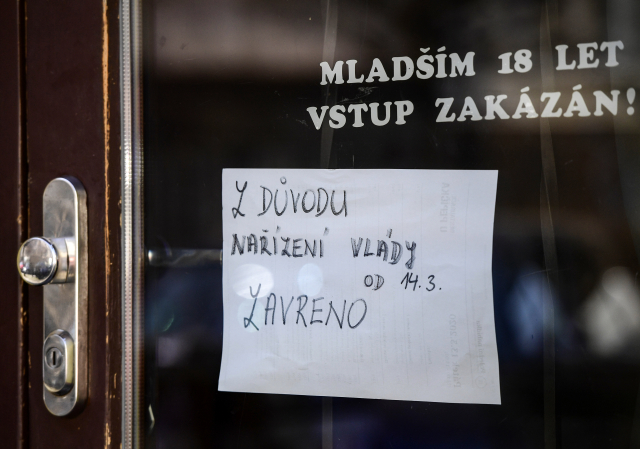 MLADŠÍM 18 LET
VSTUP ZAKÁZÁN!
Z DŮVODU
NAŘÍZENÍ VLÁDY
OD 14.3.
ZAVRENO